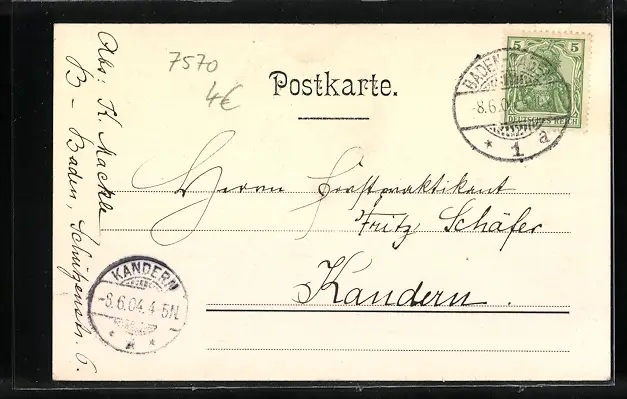 Abs: K. Mackle
B-Baden, Schützenstr. 6.
7570
4€
Postkarte.
5 5
DEUTSCHES REICH
BADEN-BADEN
-8.6.04
* 1 a
Herrn Forstpraktikant
Fritz Schäfer
Kandern.
KANDERN
-8.6.04. 4-5N.